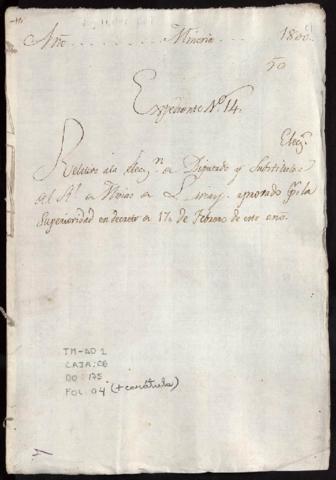 Año . . . . . . Mineria . . . . . 1800
50
Expediente N.º 14.
Elecⁿ
Relativo ala elecⁿ de Diputado y Substitutos
del Rl de Minas de Lucanas, aprovado pr la
Superioridad en decreto de 17 de Febrero de este año.
TM-AD 1
CAJA: 06
DO: 175
FOL: 04 (+ carátula)